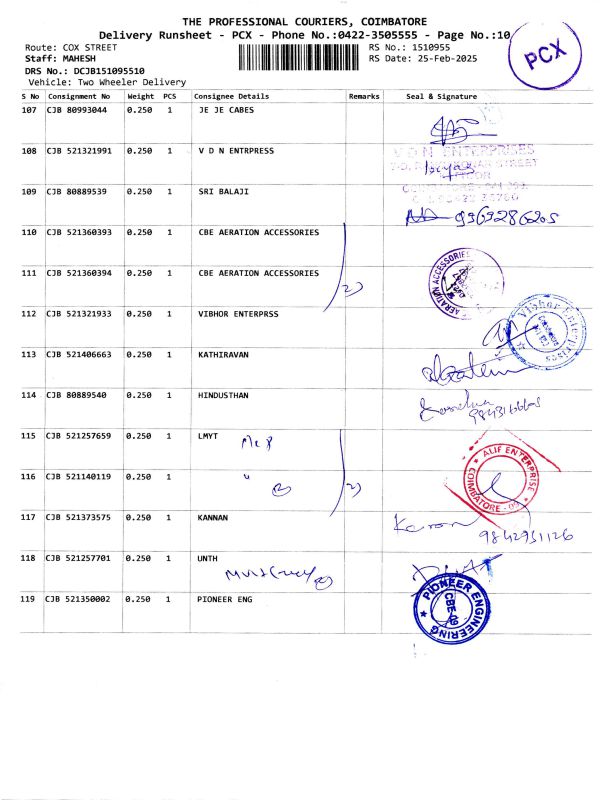 THE PROFESSIONAL COURIERS, COIMBATORE
Delivery Runsheet - PCX - Phone No.:0422-3505555 - Page No.:10
Route: COX STREET
RS No.: 1510955
Staff: MAHESH
RS Date: 25-Feb-2025
DRS No.: DCJB151095510
Vehicle: Two Wheeler Delivery
PCX
S No Consignment No Weight PCS Consignee Details Remarks Seal & Signature
107 CJB 80993044 0.250 1 JE JE CABES
108 CJB 521321991 0.250 1 V D N ENTRPRESS
V D N ENTERPRISES
109 CJB 80889539 0.250 1 SRI BALAJI
110 CJB 521360393 0.250 1 CBE AERATION ACCESSORIES
111 CJB 521360394 0.250 1 CBE AERATION ACCESSORIES
2)
AERATION ACCESSORIES
112 CJB 521321933 0.250 1 VIBHOR ENTERPRSS
Vibhor Enterprises
113 CJB 521406663 0.250 1 KATHIRAVAN
114 CJB 80889540 0.250 1 HINDUSTHAN
115 CJB 521257659 0.250 1 LMYT
116 CJB 521140119 0.250 1
" 2
2)
ALIF ENTERPRISE
COIMBATORE
117 CJB 521373575 0.250 1 KANNAN
9842951126
118 CJB 521257701 0.250 1 UNTH
119 CJB 521350002 0.250 1 PIONEER ENG
PIONEER ENGINEERING